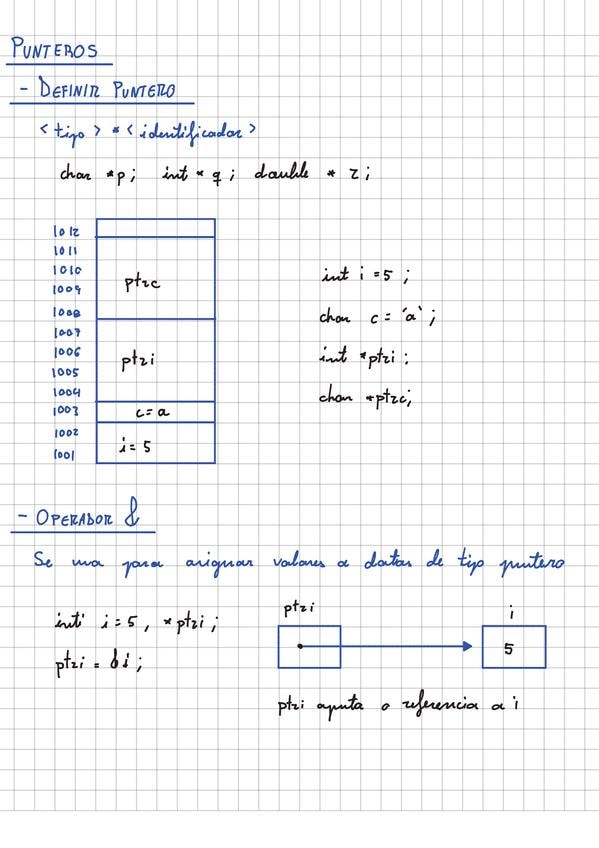 PUNTEROS
- DEFINIR PUNTERO
<tipo> * <identificador>
char *p; int * q; double * z;
1012
1011
1010
1009
ptrc
1008
1007
1006
1005
ptri
1004
1003
c=a
1002
1001
i=5
int i =5 ;
char c= 'a' ;
int *ptri :
char *ptrc;
- OPERADOR &
Se usa para asignar valores a datos de tipo puntero
int i=5, *ptri;
ptri = &i;
ptri
i
5
ptri apunta o referencia a i